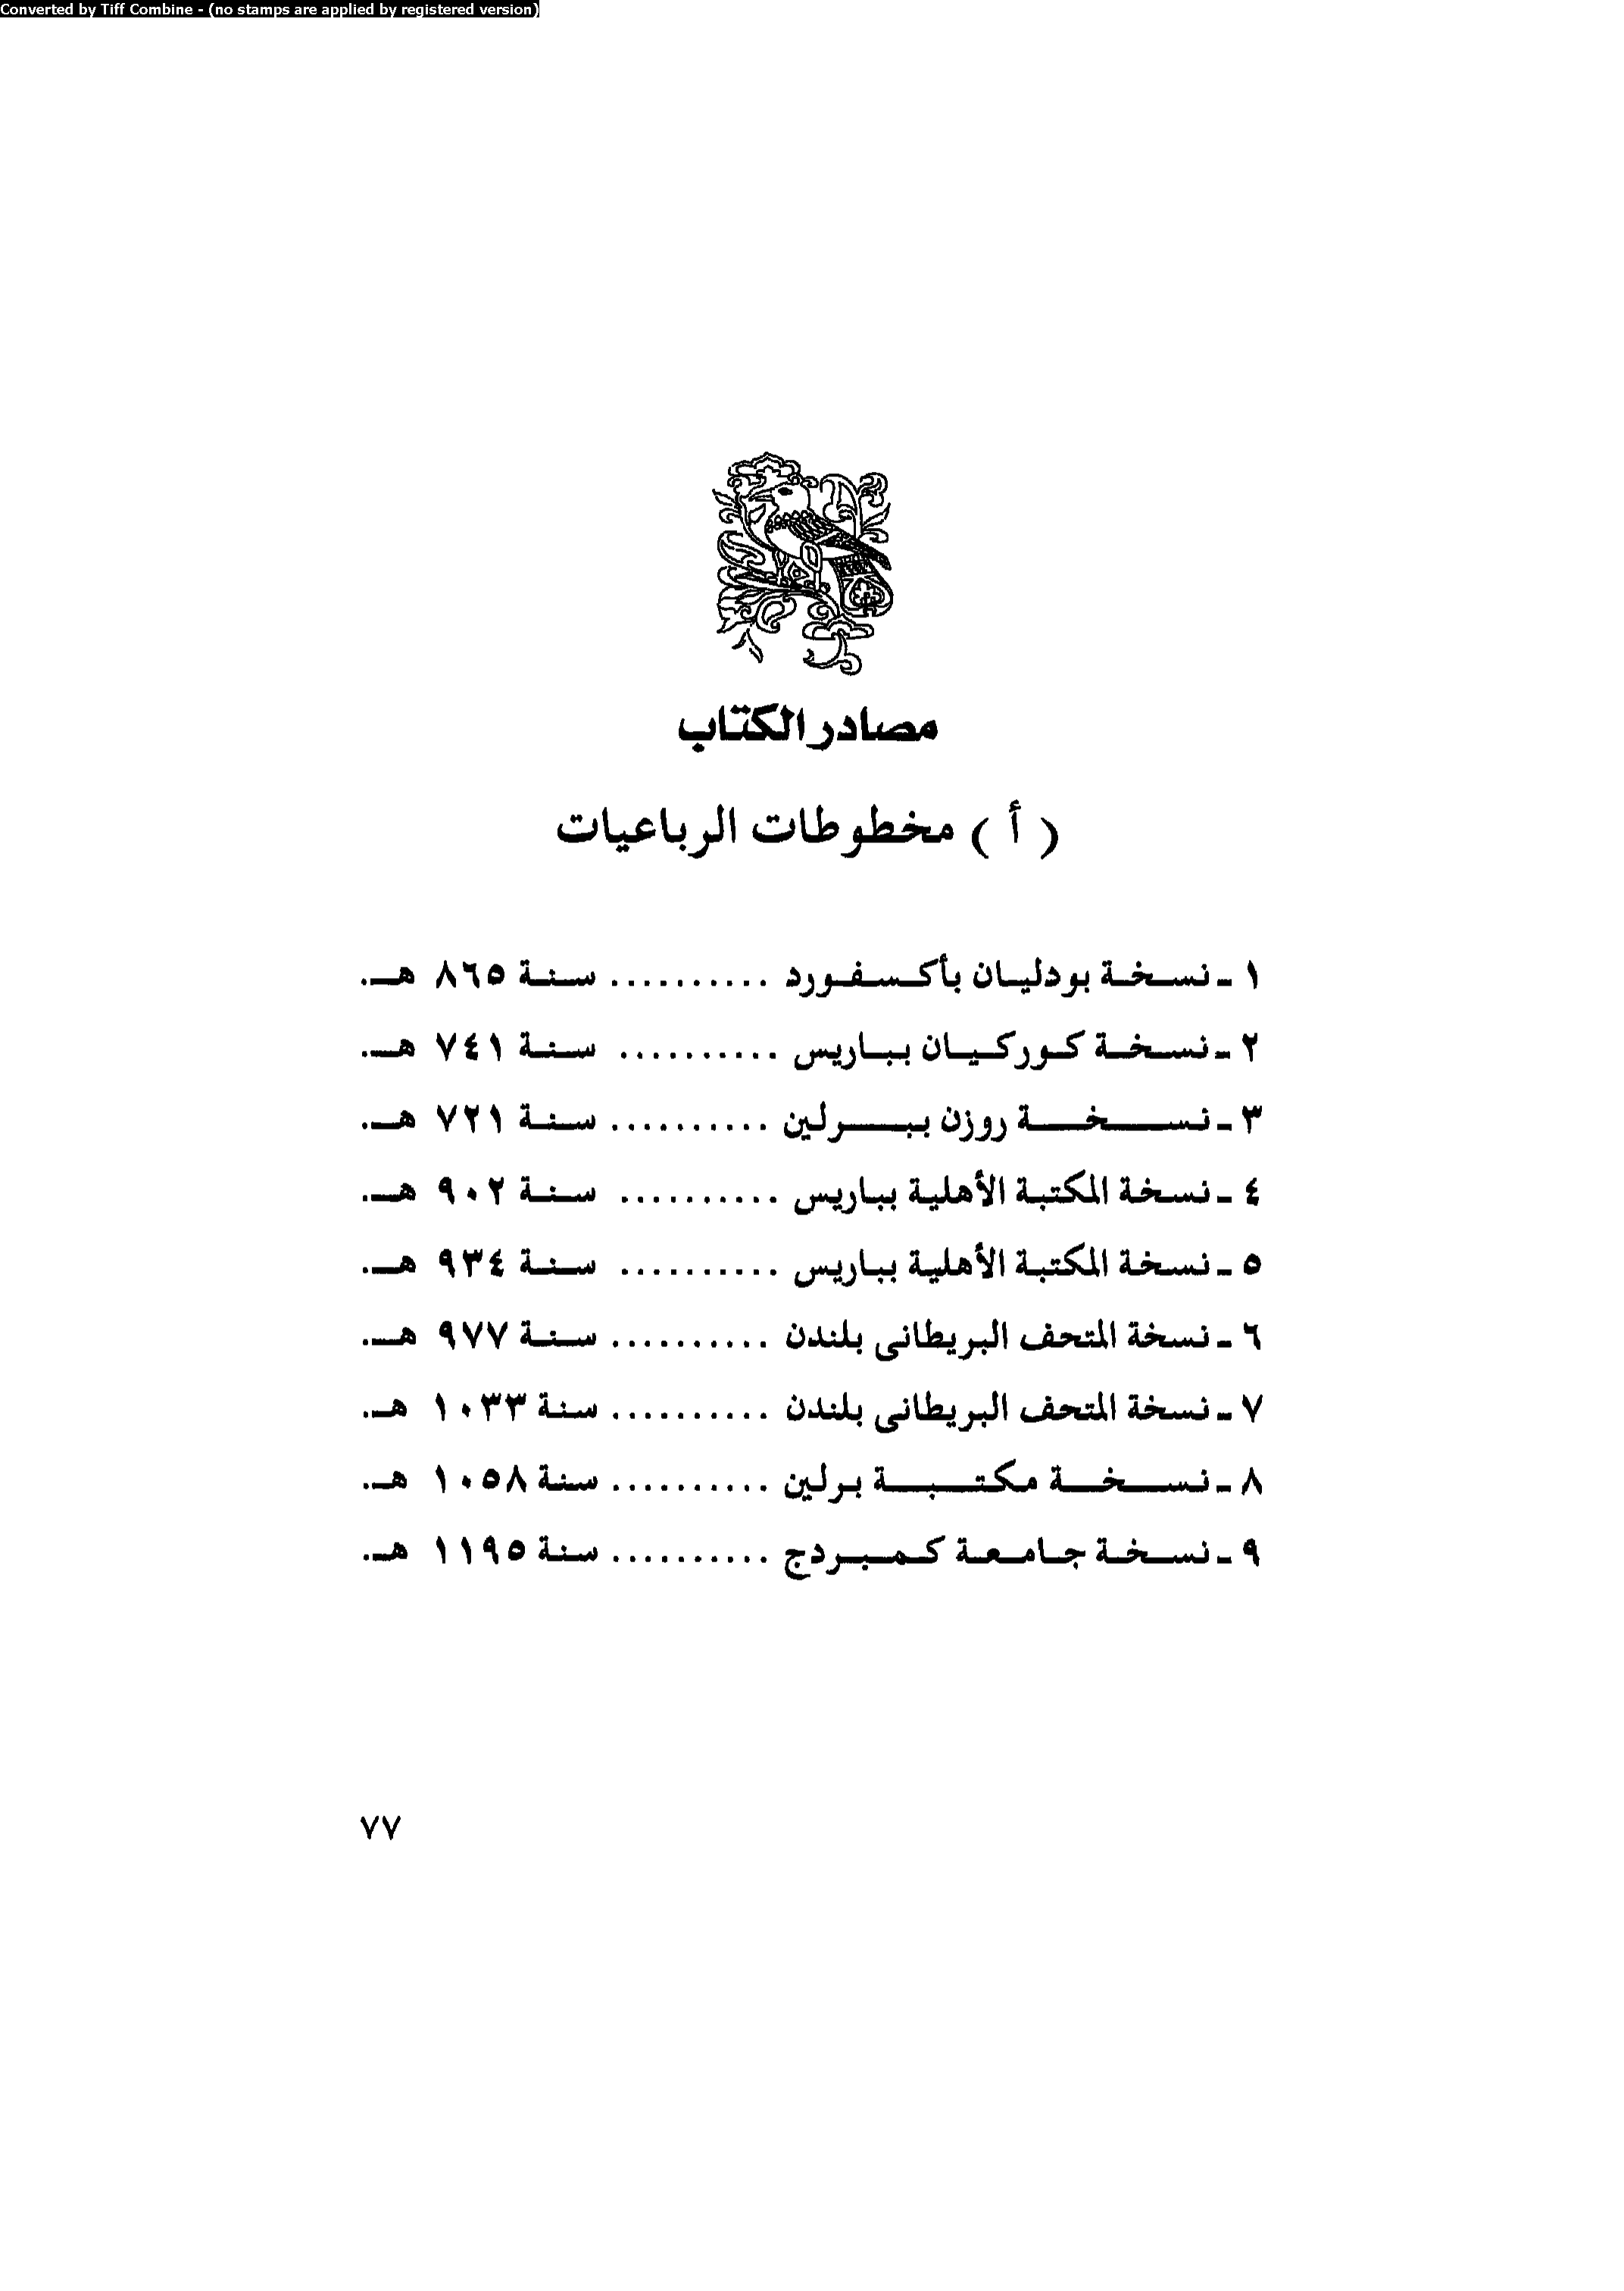 Converted by Tiff Combine - (no stamps are applied by registered version)
مصادر الكتاب
( أ ) مخطوطات الرباعيات
١ ـ نسخة بودليان بأكسفورد .......... سنة ٨٦٥ هـ.
٢ ـ نسخة كوركيان بباريس .......... سنة ٧٤١ هـ.
٣ ـ نسخة روزن ببرلين .......... سنة ٧٢١ هـ.
٤ ـ نسخة المكتبة الأهلية بباريس .......... سنة ٩٠٢ هـ.
٥ ـ نسخة المكتبة الأهلية بباريس .......... سنة ٩٣٤ هـ.
٦ ـ نسخة المتحف البريطانى بلندن .......... سنة ٩٧٧ هـ.
٧ ـ نسخة المتحف البريطانى بلندن .......... سنة ١٠٣٣ هـ.
٨ ـ نسخة مكتبة برلين .......... سنة ١٠٥٨ هـ.
٩ ـ نسخة جامعة كمبردج .......... سنة ١١٩٥ هـ.
٧٧